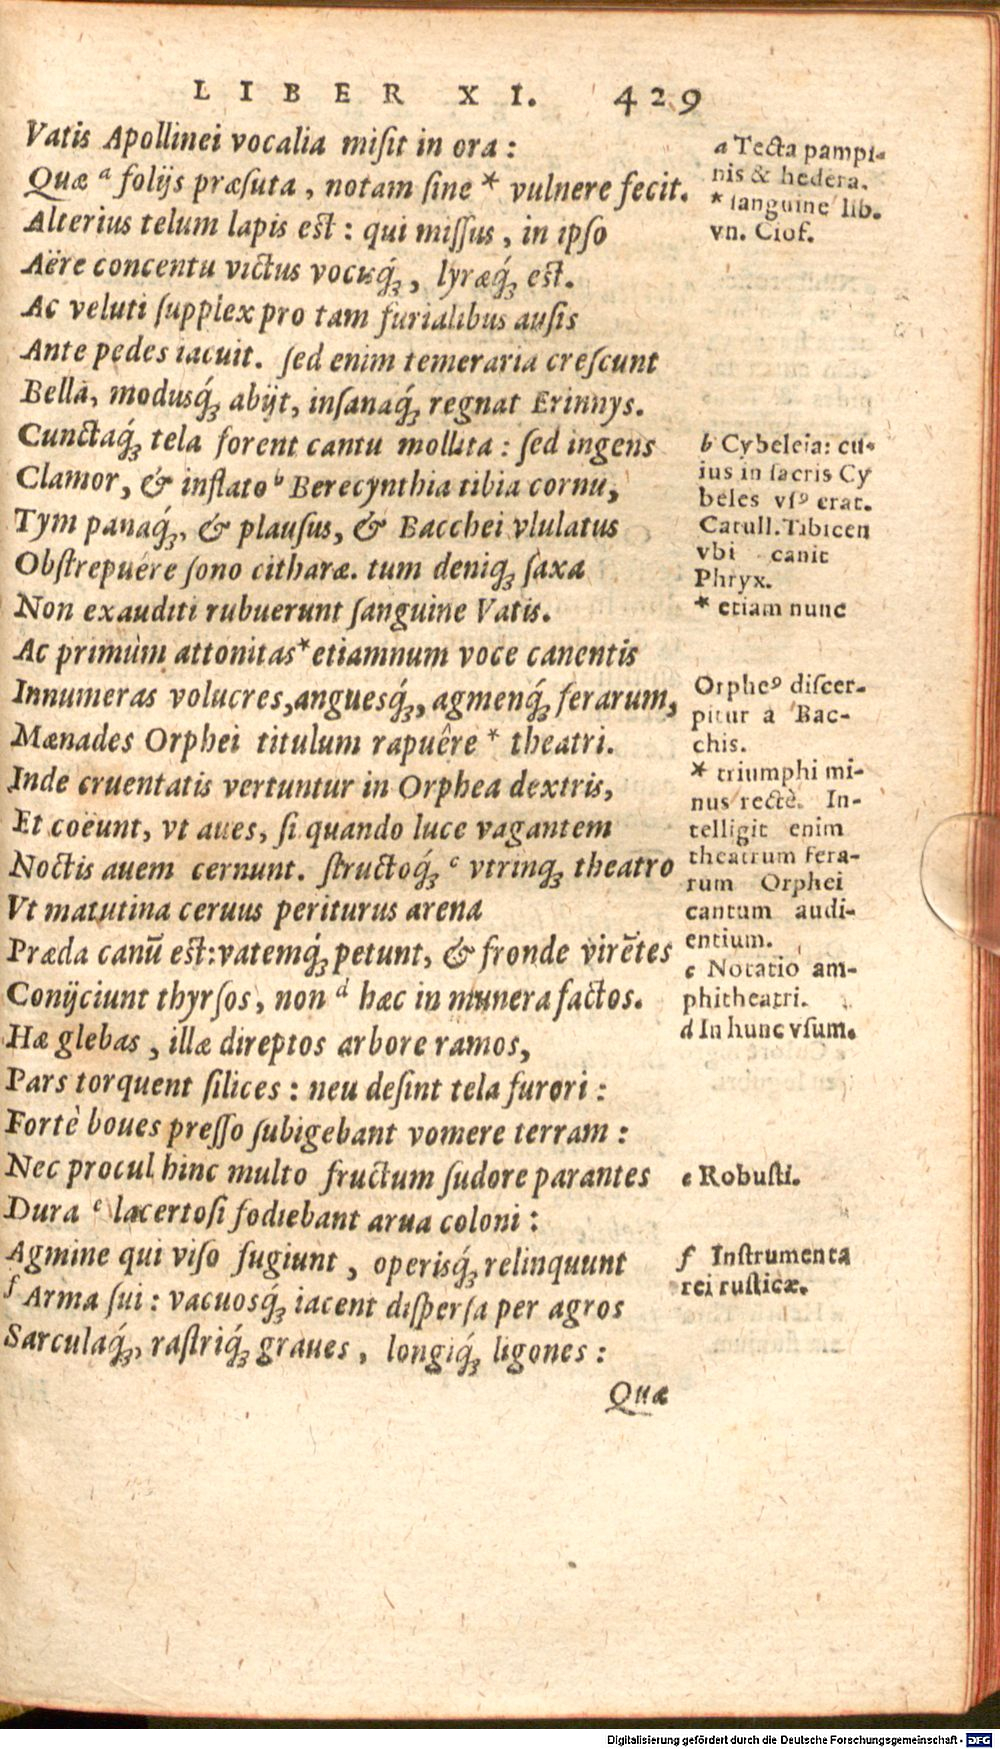 LIBER XI. 429
Vatis Apollinei vocalia misit in ora:
Quæ ᵃ folijs præsuta, notam sine * vulnere fecit.
Alterius telum lapis est: qui missus, in ipso
Aëre concentu victus vocisq́;, lyræq́; est.
Ac veluti supplex pro tam furialibus ausis
Ante pedes iacuit. sed enim temeraria crescunt
Bella, modusq́; abijt, insanaq́; regnat Erinnys.
Cunctaq́; tela forent cantu mollita: sed ingens
Clamor, & inflato ᵇ Berecynthia tibia cornu,
Tympanaq́;, & plausus, & Bacchei vlulatus
Obstrepuêre sono citharæ. tum deniq; saxa
Non exauditi rubuerunt sanguine Vatis.
Ac primùm attonitas * etiamnum voce canentis
Innumeras volucres, anguesq́;, agmenq́; ferarum,
Mænades Orphei titulum rapuêre * theatri.
Inde cruentatis vertuntur in Orphea dextris,
Et coëunt, vt aues, si quando luce vagantem
Noctis auem cernunt. structoq́; ᶜ vtrinq; theatro
Vt matutina ceruus periturus arena
Præda canū est: vatemq́; petunt, & fronde virētes
Conijciunt thyrsos, non ᵈ hæc in munera factos.
Hæ glebas, illæ direptos arbore ramos,
Pars torquent silices: neu desint tela furori:
Fortè boues presso subigebant vomere terram:
Nec procul hinc multo fructum sudore parantes
Dura ᵉ lacertosi fodiebant arua coloni:
Agmine qui viso fugiunt, operisq́; relinquunt
ᶠ Arma sui: vacuosq́; iacent dispersa per agros
Sarculaq́;, rastriq́; graues, longiq́; ligones:
Quæ
a Tecta pampi-
nis & hedera.
* sanguine lib.
vn. Ciof.
b Cybeleia: cu-
ius in sacris Cy
beles vsꝰ erat.
Catull. Tibicen
vbi canit
Phryx.
* etiam nunc
Orpheꝰ discer-
pitur a Bac-
chis.
* triumphi mi-
nus rectè. In-
telligit enim
theatrum fera-
rum Orphei
cantum audi-
entium.
c Notatio am-
phitheatri.
d In hunc vsum.
e Robusti.
f Instrumenta
rei rusticæ.
Digitalisierung gefördert durch die Deutsche Forschungsgemeinschaft - DFG